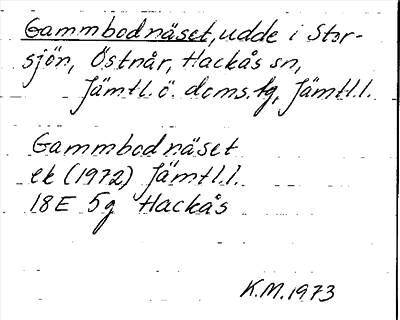 Gammbodnäset, udde i Stor-
sjön, Östnår, Hackås sn,
Jämtl. ö. doms. tg, Jämtl.l.
Gammbodnäset
ek (1972) Jämtl.l.
18E 5g Hackås
K.M. 1973